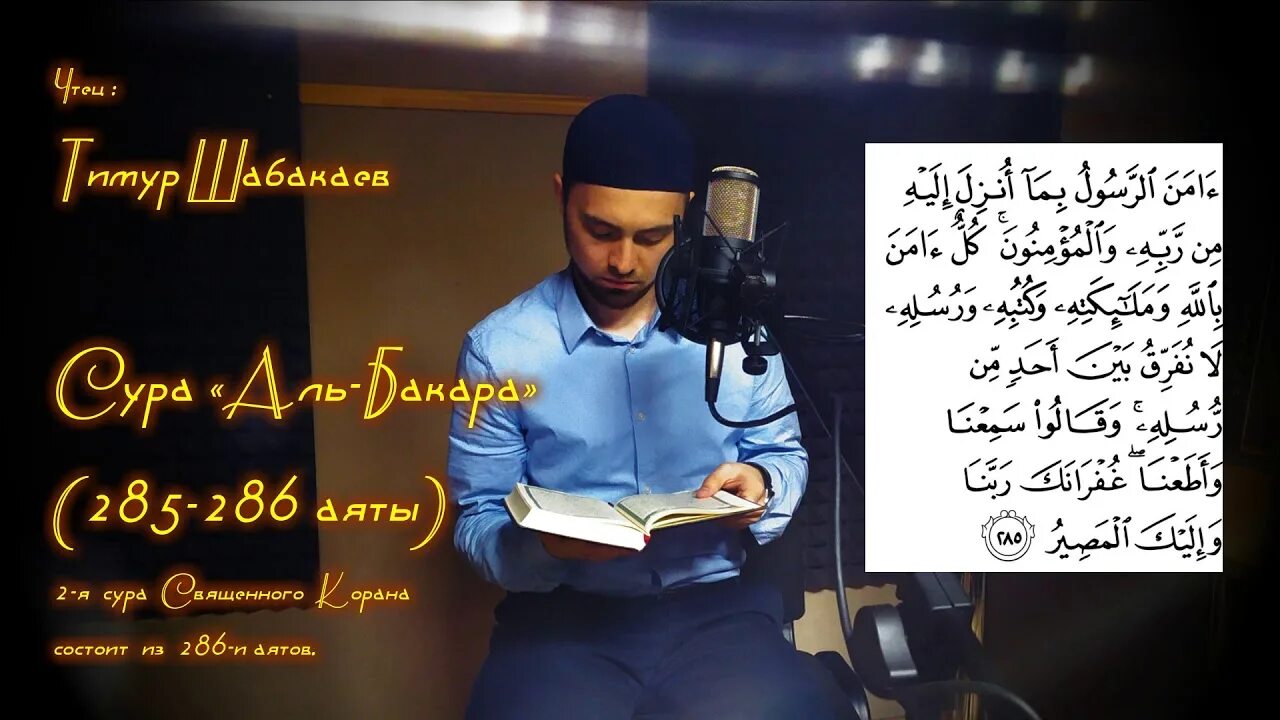 Чтец:
Тимур Шабакаев
Сура «Аль-Бакара»
(285-286 аяты)
2-я сура Священного Корана
состоит из 286-и аятов.
ءَامَنَ ٱلرَّسُولُ بِمَآ أُنزِلَ إِلَيْهِ
مِن رَّبِّهِۦ وَٱلْمُؤْمِنُونَ ۚ كُلٌّ ءَامَنَ
بِٱللَّهِ وَمَلَـٰٓئِكَتِهِۦ وَكُتُبِهِۦ وَرُسُلِهِۦ
لَا نُفَرِّقُ بَيْنَ أَحَدٍ مِّن
رُّسُلِهِۦ ۚ وَقَالُوا۟ سَمِعْنَا
وَأَطَعْنَا ۖ غُفْرَانَكَ رَبَّنَا
وَإِلَيْكَ ٱلْمَصِيرُ ٢٨٥